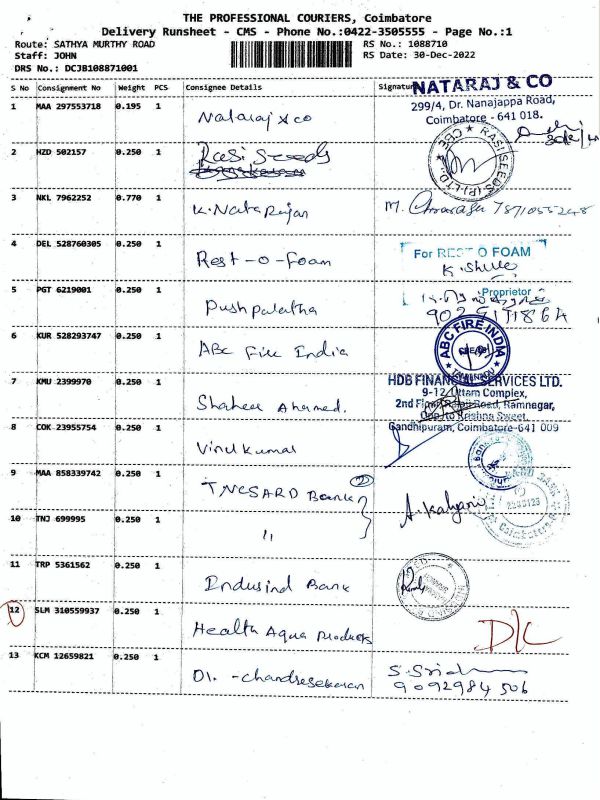 THE PROFESSIONAL COURIERS, Coimbatore
Delivery Runsheet - CMS - Phone No.:0422-3505555 - Page No.:1
Route: SATHYA MURTHY ROAD
Staff: JOHN
DRS No.: DCJB108871001
RS No.: 1088710
RS Date: 30-Dec-2022
S No Consignment No Weight PCS Consignee Details Signature
1 MAA 297553718 0.195 1 Nataraj & co
NATARAJ & CO
299/4, Dr. Nanajappa Road,
Coimbatore - 641 018.
2 HZD 502157 0.250 1 Rasi Seeds
RASI SEEDS (P) LTD. CBE
3 NKL 7962252 0.770 1 K. Nata Rajan
7871055248
4 DEL 528760305 0.250 1 Rest-O-Foam
For REST O FOAM
Proprietor
5 PGT 6219001 0.250 1 Pushpalatha
6 KUR 528293747 0.250 1 ABC Fire India
ABC FIRE INDIA
7 KMU 2399970 0.250 1 Shaheer Ahamed.
HDB FINANCIAL SERVICES LTD.
9-12, Uttam Complex,
2nd Floor, Road, Ramnegar,
Opp. to Krishna Sweet,
Gandhipuram, Coimbatore-641 009
8 COK 23955754 0.250 1 Vinu Kumar
9 MAA 858339742 0.250 1 TNCSARD Bank 2
A. Kalyani
10 TNJ 699995 0.250 1 "
11 TRP 5361562 0.250 1 Indusind Bank
12 SLM 310559937 0.250 1 Health Aqua Products
D/L
13 KCM 12659821 0.250 1 Dr. -chandrasekaran
9092984506